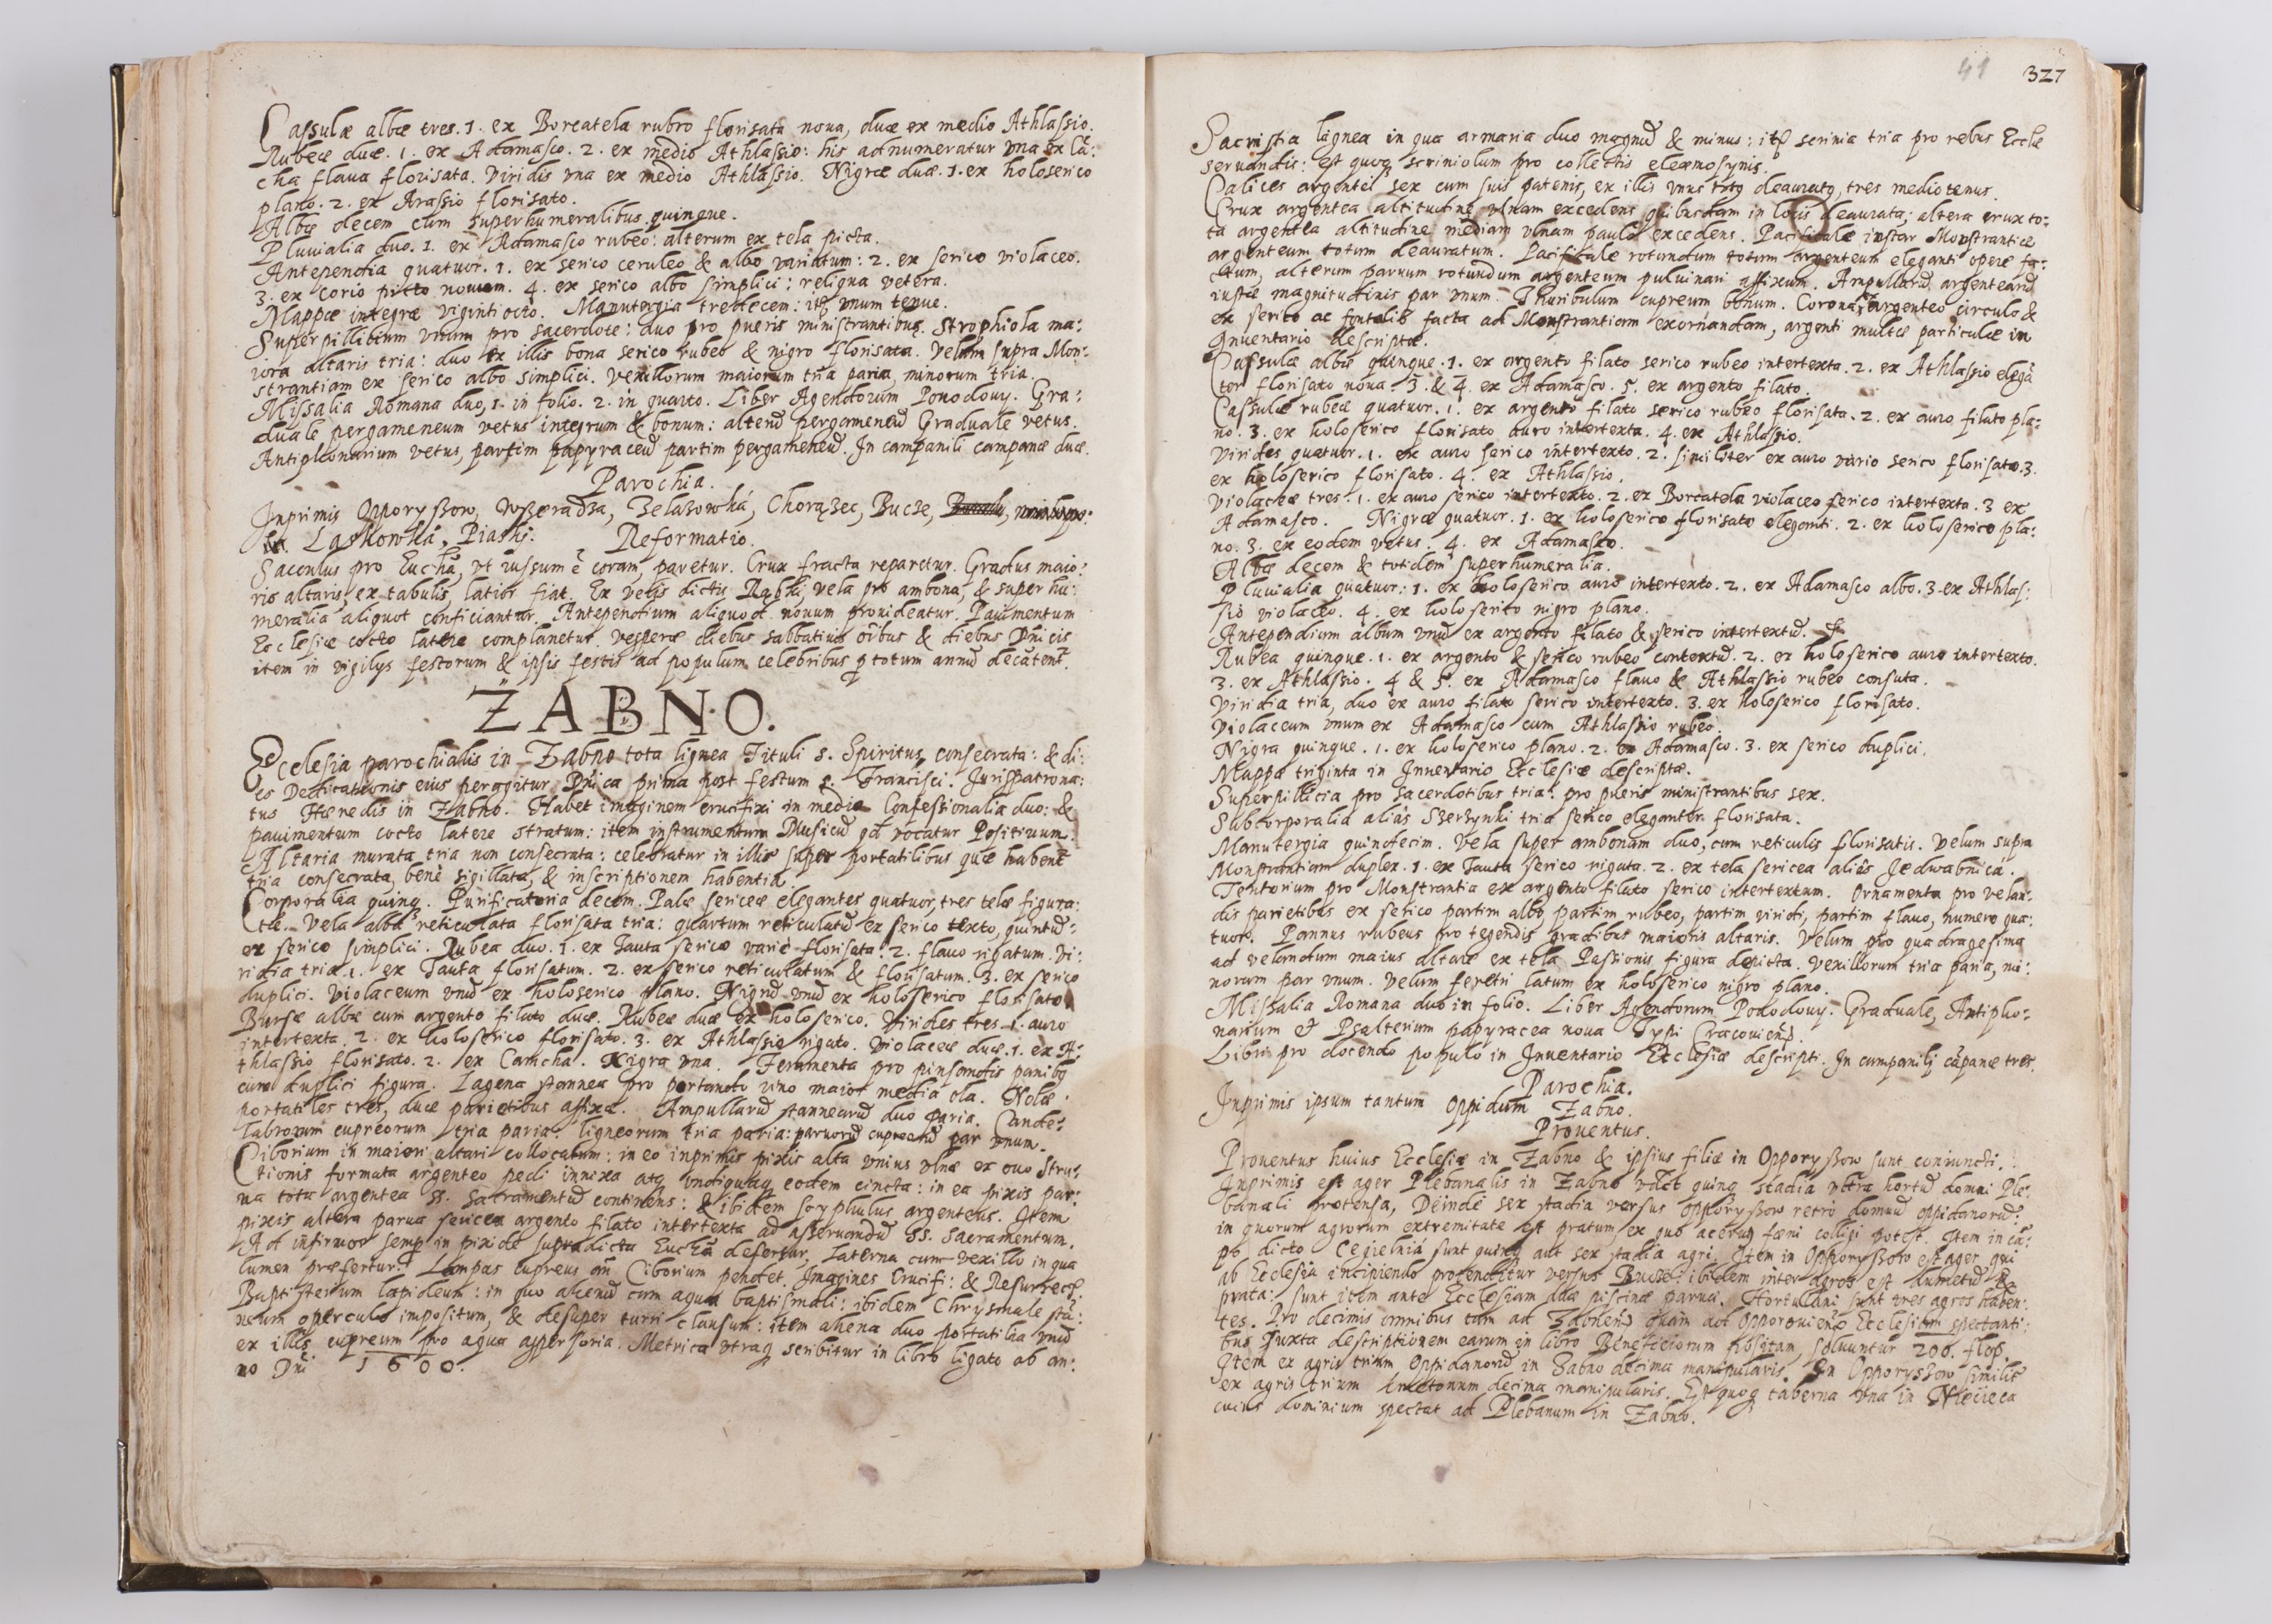 Cassulæ albæ tres. 1. ex Borcatela rubro florisata noua, duæ ex medio Athlassio.
Rubeæ duæ. 1. ex Adamasco. 2. ex medio Athlassio: his adnumeratur vna ex Cã:
cha flaua florisata. Viridis vna ex medio Athlassio. Nigræ duæ. 1. ex holoserico
plano. 2. ex Arassio florisato.
Albæ decem cum superhumeralibus quinque.
Pluuialia duo. 1. ex Adamasco rubeo: alterum ex tela picta.
Antependia quatuor. 1. ex serico ceruleo & albo variatum: 2. ex serico violaceo.
3. ex corio picto nouum. 4. ex serico albo simplici: reliqua vetera.
Mappæ integræ viginti octo. Manutergia tredecem: itẽ vnum tenue.
Superpillicium vnum pro sacerdote: duo pro pueris ministrantibus. Strophiola ma:
iora altaris tria: duo ex illis bona serico rubeo & nigro florisata. Velum supra Mon:
strantiam ex serico albo simplici. Vexillorum maiorum tria paria, minorum tria.
Missalia Romana duo, 1. in folio. 2. in quarto. Liber Agendorum Powodouy. Gra:
duale pergameneum vetus integrum & bonum: alterũ pergameneũ Graduale vetus.
Antiphonarium vetus, partim papyraceũ partim pergameneũ. In campanili campanæ duæ.
Parochia.
Inprimis Opporyssow, Wszeradza, Zelazowká, Chorązec, Bucze,
Laskowká, Piaski. Reformatio.
Sacculus pro Euchã, vt iussum ẽ coram, paretur. Crux fracta reparetur. Gradus maio:
ris altaris ex tabulis latior fiat. Ex velis dictis Rąbki, vela pro ambona, & superhu:
meralia aliquot conficiantur. Antependium aliquod nouum prouideatur. Pauimentum
Ecclesiæ cocto latere complanetur. Vesperæ diebus sabbatius oĩbus & diebus Dñicis
item in vigilijs festorum & ipsis festis ad populum celebribus p totum annũ decãtent.
ŻABNO.
Ecclesia parochialis in Zabno tota lignea Tituli S. Spiritus, consecrata: & di:
es Dedicationis eius peragitur Dñica prima post festum S. Francisci. Jurispatrona:
tus Hæredis in Zabno. Habet imaginem crucifixi in medio. Confessionalia duo: &
pauimentum cocto latere stratum: item instrumentum Musicũ qd vocatur Positiuum.
Altaria murata tria non consecrata: celebratur in illis super portatilibus quæ habent
tria consecrata, benè sigillata, & inscriptionem habentia.
Corporalia quinq. Purificatoria decem. Palæ sericeæ elegantes quatuor, tres telæ figura:
tæ. Vela alba reticulata florisata tria: quartum reticulatũ ex serico texto, quintũ:
ex serico simplici. Rubea duo. 1. ex Tauta serico variè florisata. 2. flauo rigatum. Vi:
ridia tria. 1. ex Tauta florisatum. 2. ex serico reticulatum & florisatum. 3. ex serico
duplici. Violaceum vnũ ex holoserico plano. Nigrũ vnũ ex holoserico florisato.
Bursæ albæ cum argento filato duæ. Rubeæ duæ ex holoserico. Virides tres. 1. auro
intertexta. 2. ex holoserico florisato. 3. ex Athlassio rigato. Violaceæ duæ. 1. ex A:
thlassio florisato. 2. ex Camcha. Nigra vna. Ferramenta pro pinsandis panibus
cum duplici figura. Lagena stannea pro portando vino maior media ola. Nolæ
portatiles tres, duæ parietibus affixæ. Ampullarũ stannearũ duo paria. Cande:
labrorum cupreorum tria paria: ligneorum tria paria: paruorũ cupreorũ par vnum.
Ciborium in maiori altari collocatum: in eo inprimis pixis alta vnius vlnæ ex ouo Stru:
tionis formata argenteo pedi innixa atq vndiquaq eodem cincta: in ea pixis par:
ua tota argentea SS. Sacramentũ continens: & ibidem scyphulus argenteus. Item
pixis altera parua sericea argento filato intertexta ad asseruandũ SS. Sacramentum.
Ad infirmos semp in pixide supradicta Euchã defertur, Laterna cum vexillo in qua
lumen præfertur. Lampas cupreus añ Ciborium pendet. Imagines Crucifi: & Resurrect.
Baptisterium lapideum: in quo ahenũ cum aqua baptismali: ibidem Chrysmale stã:
neum operculo impositum, & desuper turri clausum: item ahena duo portatilia vnũ
ex illis cupreum pro aqua aspersoria. Metrica vtraq scribitur in libro ligato ab an:
no Dñi 1600.
41 327
Sacristia lignea in qua armaria duo magnũ & minus: itẽ scrinia tria pro rebus Eccle
seruandis: est quoq scriniolum pro collectis eleæmosynis.
Calices argentei sex cum suis patenis, ex illis vnus totq deauratq, tres mediotenus.
Crux argentea altitudine vlnam excedens quibusdam in locis deaurata; altera crux to:
ta argentea altitudine mediam vlnam paulò excedens. Pacificale instar Monstrantiæ
argenteum totum deauratum. Pacificale rotundum totum argenteum eleganti opere fa:
ctum, alterum paruum rotundum argenteum puluinari affixum. Ampullarũ argentearũ
iustæ magnitudinis par vnum. Thuribulum cupreum bonum. Corona ex argenteo circulo &
ex serico ac fontalis facta ad Monstrantiam exornandam, argenti multæ particulæ in
Inuentario descriptæ.
Cassulæ albæ quinque. 1. ex argento filato serico rubeo intertexta. 2. ex Athlassio elegã
ter florisato noua 3. & 4. ex Adamasco. 5. ex argento filato.
Cassulæ rubeæ quatuor. 1. ex argento filato serico rubeo florisata. 2. ex auro filato pla:
no. 3. ex holoserico florisato auro intertexta. 4. ex Athlassio.
Virides quatuor. 1. ex auro serico intertexto. 2. similiter ex auro vario serico florisato. 3.
ex holoserico florisato. 4. ex Athlassio.
Violaceæ tres. 1. ex auro serico intertexto. 2. ex Borcatela violaceo serico intertexta. 3 ex
Adamasco. Nigræ quatuor. 1. ex holoserico florisato eleganti. 2. ex holoserico pla:
no. 3. ex eodem vetus. 4. ex Adamasco.
Albæ decem & totidem superhumeralia.
Pluuialia quatuor: 1. ex holoserico auro intertexto. 2. ex Adamasco albo. 3. ex Athlas:
sio violaceo. 4. ex holoserico nigro plano.
Antependium album vnũ ex argento filato & serico intertextũ.
Rubea quinque. 1. ex argento & serico rubeo contextũ. 2. ex holoserico auro intertexto.
3. ex Athlassio. 4 & 5. ex Adamasco flauo & Athlassio rubeo consuta.
Viridia tria, duo ex auro filato serico intertexto. 3. ex holoserico florisato.
Violaceum vnum ex Adamasco cum Athlassio rubeo.
Nigra quinque. 1. ex holoserico plano. 2. ex Adamasco. 3. ex serico duplici.
Mappæ triginta in Inuentario Ecclesiæ descriptæ.
Superpillicia pro Sacerdotibus tria: pro pueris ministrantibus sex.
Subcorporalia aliàs Szerzynki tria serico eleganter florisata.
Manutergia quindecim. Vela super ambonam duo, cum reticulis florisatis. Velum supra
Monstrantiam duplex. 1. ex Tauta serico rigata. 2. ex tela sericea aliâs Jedwabnica.
Tentorium pro Monstrantia ex argento filato serico intertextum. Ornamenta pro velan:
dis parietibus ex serico partim albo, partim rubeo, partim viridi, partim flauo, numero qua:
tuor. Pannus rubeus pro tegendis gradibus maioris altaris. Velum pro quadragesima
ad velandum maius altare ex tela Passionis figura depicta. Vexillorum tria paria, mi:
norum par vnum. Velum feretri latum ex holoserico nigro plano.
Missalia Romana duo in folio. Liber Agendorum Powodouy. Graduale, Antipho:
narium et Psalterium papyracea noua Typi Cracouieñ.
Libri pro docendo populo in Inuentario Ecclesiæ descripti. In campanili cãpanæ tres.
Parochia.
Inprimis ipsum tantum Oppidum Zabno.
Prouentus.
Prouentus huius Ecclesiæ in Zabno & ipsius filiæ in Opporyssow sunt coniuncti.
Inprimis est ager Plebanalis in Zabno vdlt quinq stadia vltra hortũ domui Ple:
banali protensa, Deinde sex stadia versus Opporyssow retrò domus oppidanorũ:
in quorum agrorum extremitate est pratum ex quo aceruus fæni colligi potest. Item in cã:
po dicto Cegielniá sunt quinq aut sex stadia agri. Item in Opporyssow est ager qui
ab Ecclesia incipiendo protenditur versus Bucze: ibidem inter agros est dumetũ &
prata: sunt item ante Ecclesiam duæ piscinæ paruæ. Hortulani sunt tres agros haben:
tes. Pro decimis omnibus tam ad Zabneñ quàm ad Opporouieñ Ecclesiam spectanti:
bus iuxta descriptionem earum in libro Beneficiorum positam soluuntur 206. flos.
Item ex agris trium Oppidanorũ in Zabno decima manipularis. In Opporyszow similit
ex agris trium kmetonum decima manipularis. Est quoq taberna vna in Niecieca
cuius dominium spectat ad Plebanum in Zabno.